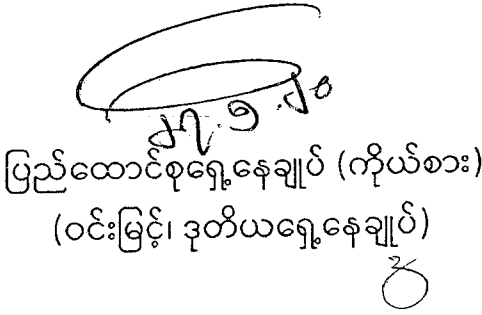 ၂၇.၅.၂၀
ပြည်ထောင်စုရှေ့နေချုပ် (ကိုယ်စား)
(ဝင်းမြင့်၊ ဒုတိယရှေ့နေချုပ်)